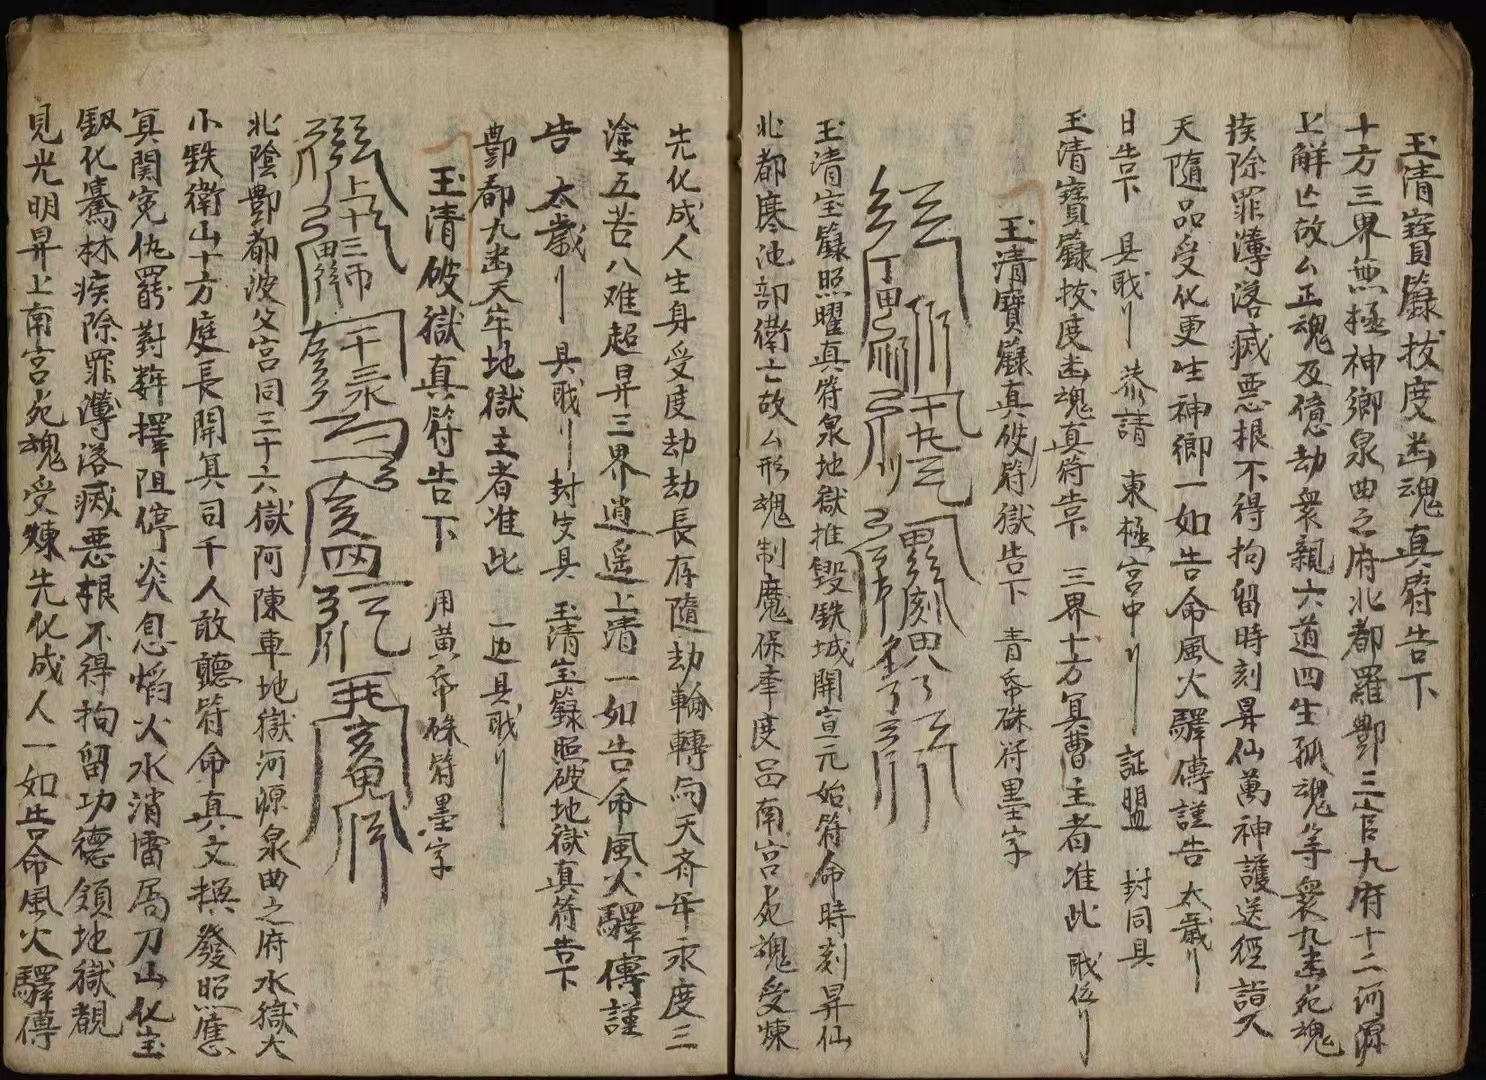 玉清寶籙拔度幽魂真符告下
十方三界無極神鄉泉曲之府北都羅酆三官九府十二河源
上解亡故厶正魂及億劫衆親六道四生孤魂等衆九幽苑魂
疾除罪簿落滅惡根不得拘留時刻昇仙萬神護送徑詣
天隨品受化更生神鄉一如告命風火驛傳謹告 太歲
日告下 具戝 恭請 東極宮中 証盟 封同具
玉清寶籙拔度幽魂真符告下 三界十方冥曹主者准此 戝位
玉清寶籙真伩符獄告下 青帋硃符墨字
玉清宝籙照曜真符泉地獄推毀鉄城開宣元始符命時刻昇仙
北都寒池部衛亡故厶形魂制魔保牽度品南宮苑魂受煉
先化成人生身受度劫劫長存隨劫輪轉與天齊年永度三
塗五苦八难超昇三界逍遥上清一如告命風火驛傳謹
告 太歲 具戝 封皮具 玉清宝籙照破地獄真符告下
酆都九幽天牢地獄主者准此 一边具戝
玉清破獄真符告下 用黃帋硃符墨字
北陰酆都波父宮同三十六獄阿陳車地獄河源泉曲之府水獄火
小鉄衛山十方庭長開冥司千人敢聽符命真文摂發照應
冥関冤仇罷對擇阻停炎息焰火水消雷局刀山化宝
釼化騫林疾除罪簿落滅惡根不得拘留功德領地獄覩
見光明昇上南宮苑魂受煉先化成人一如告命風火驛傳